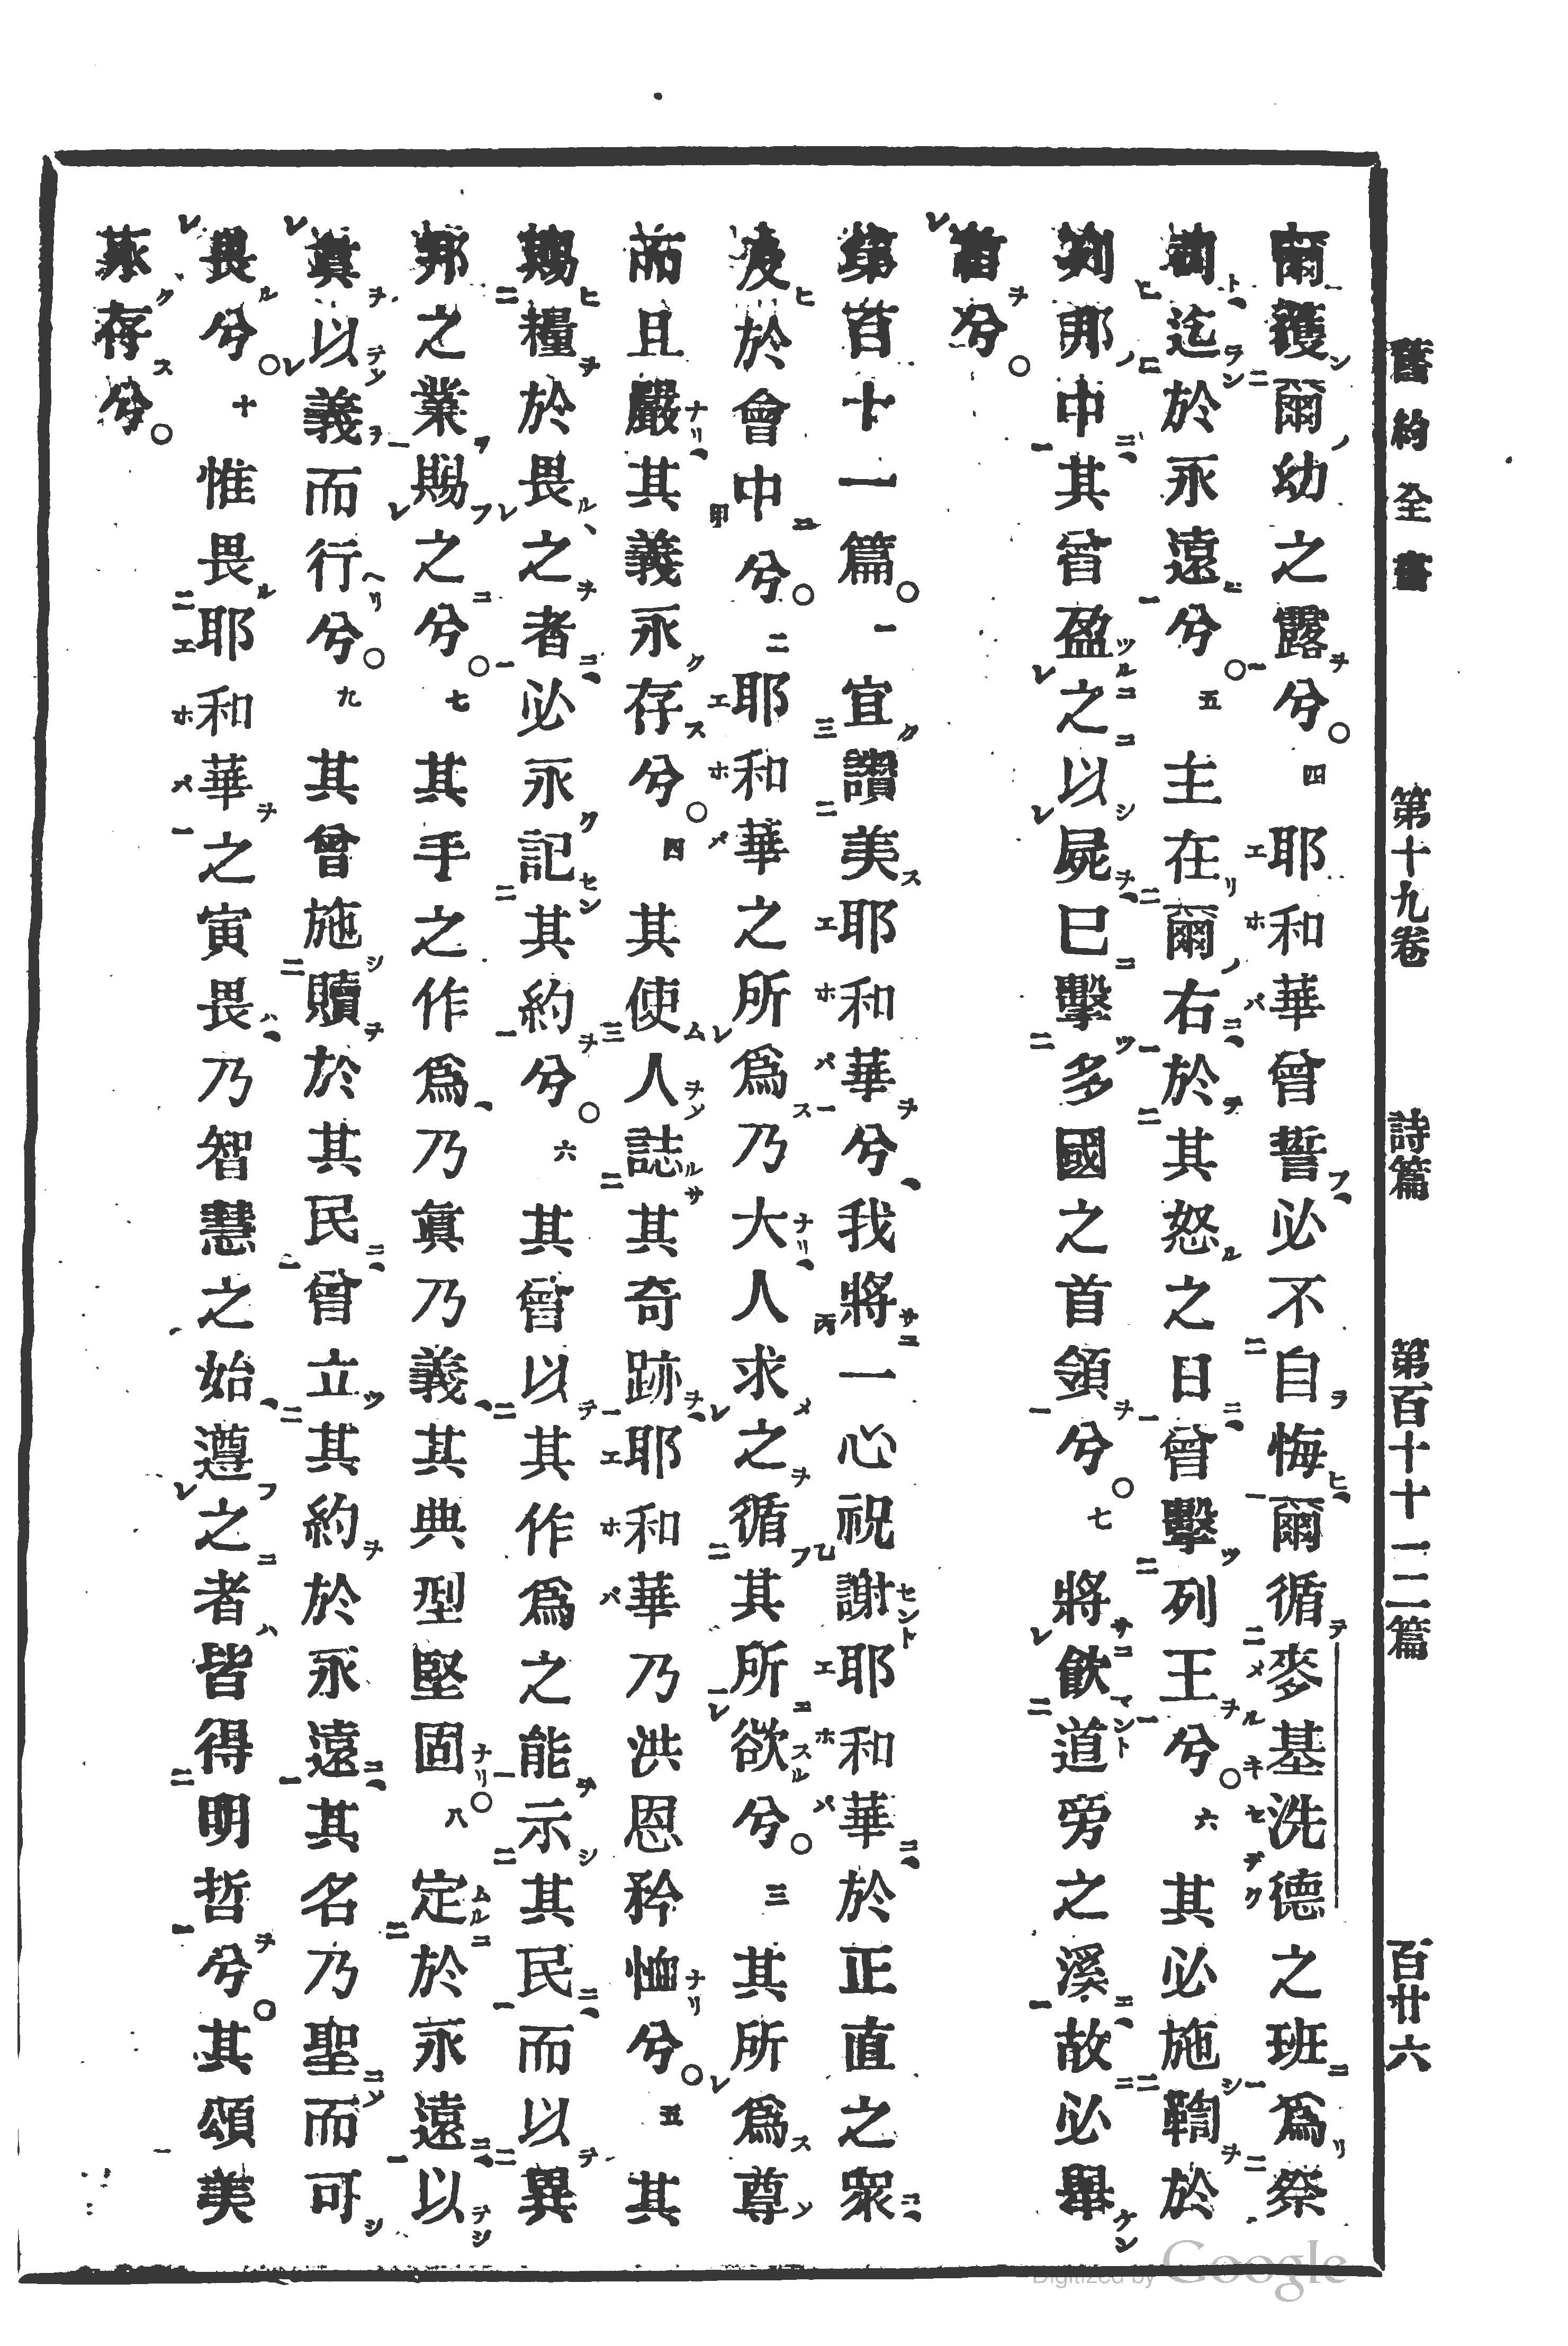 舊約全書 第十九卷 詩篇 第百十十一二篇 百廿六
爾獲爾幼之露兮○四 耶和華曾誓必不自悔爾循麥基洗德之班爲祭
司迄於永遠兮○五 主在爾右於其怒之日曾擊列王兮○六 其必施鞫於
列邦中其曾盈之以屍已擊多國之首領兮○七 將飲道旁之溪故必舉
首兮○
第百十一篇○一 宜讚美耶和華兮我將一心祝謝耶和華於正直之衆
及於會中兮○二 耶和華之所爲乃大人求之循其所欲兮○三 其所爲尊
而且嚴其義永存兮○四 其使人誌其奇跡耶和華乃洪恩矜恤兮○五 其
賜糧於畏之者必永記其約兮○六 其曾以其作爲之能示其民而以異
邦之業賜之兮○七 其手之作爲乃眞乃義其典型堅固○八 定於永遠以
眞以義而行兮○九 其曾施贖於其民曾立其約於永遠其名乃聖而可
畏兮○十 惟畏耶和華之寅畏乃智慧之始遵之者皆得明哲兮○其頌美
永存兮○
Digitized by Google